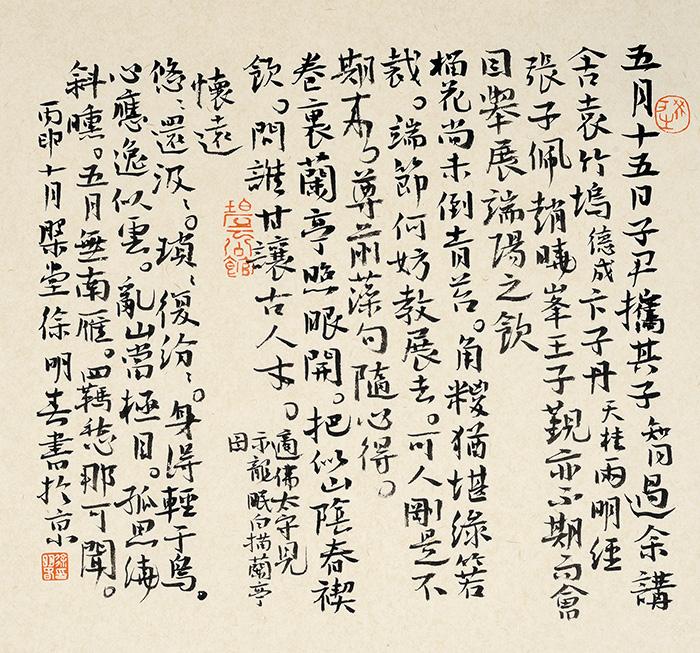 五月十五日子尹攜其子知同過余講
舍袁竹塢德成卞子丹天桂兩明經
張子佩趙曉峯王子觀亦不期而會
因舉展端陽之飲
榴花尚未倒青苔。角糉猶堪綠箬
裁。端節何妨教展去。可人剛是不
期來。尊前藻句隨心得。
卷裏蘭亭照眼開。把似山陰春禊
飲。問誰甘讓古人才。適佛太守見
示龍眠白描蘭亭
圖
懷遠
悠〻還汲〻。瑣〻復紛〻。身得輕于鳥。
心應逸似雲。亂山當極目。孤思
斜曛。五月無南雁。羈愁那可聞。
丙申十月槃堂徐明春書於京
碧雲館